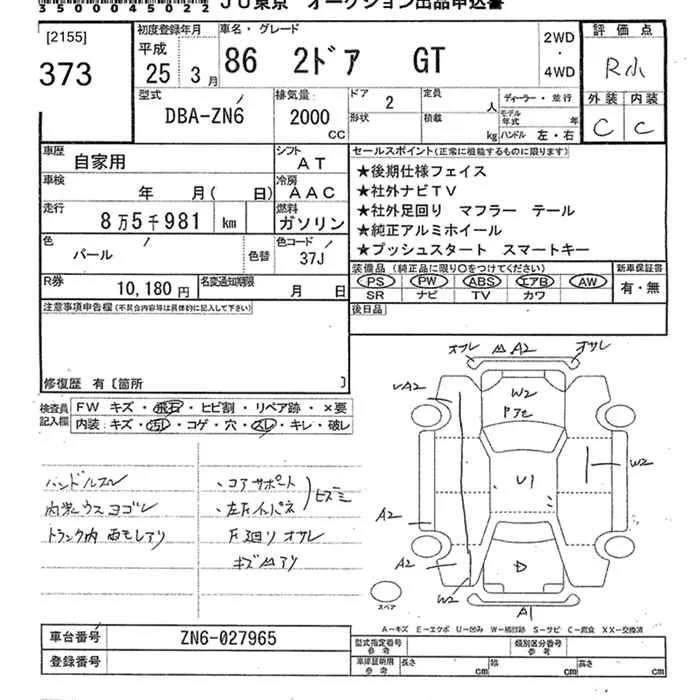 35000045022 JU東京 オークション出品申込書
[2155]
373
初度登録年月
平成
25 3月
車名・グレード
86 2ドア GT
2WD
・
4WD
評価点
R小
外装 内装
C C
型式
DBA-ZN6
排気量
2000
CC
ドア
2
定員
人
ディーラー・並行
形状
積載
kg
モデル年式 年
ハンドル 左・右
車歴
自家用
シフト
AT
車検
年 月( 日)
冷房
AAC
走行
8万5千981 km
燃料
ガソリン
色
パール
色替
色コード
37J
R券
10,180円
名変通知期限
月 日
セールスポイント(正常に稼働するものに限ります)
★後期仕様フェイス
★社外ナビTV
★社外足回り マフラー テール
★純正アルミホイール
★プッシュスタート スマートキー
装備品 (純正品に限り○をつけてください)
新車保証書
PS PW ABS エアB AW
有・無
SR ナビ TV カワ
後日品
注意事項申告欄(不具合内容等は具体的に記入して下さい)
修復歴 有〔箇所 〕
検査員
記入欄
FW キズ・飛石・ヒビ割・リペア跡・×要
内装:キズ・汚レ・コゲ・穴・スレ・キレ・破レ
ハンドルスレ
内装ウスヨゴレ
トランク内 雨モレアリ
・コアサポート
・左Fインパネ
ヒズミ
下廻り オサレ
キズ凹アリ
オサレ 凹 A2 オサレ
A2
W2
ドアモ
W2
U1
A2
A2
D
W2
A1
スペア
A-キズ E-エクボ U-凹み W-補修跡 S-サビ C-腐食 XX-交換済
車台番号
ZN6-027965
登録番号
型式指定番号
参考
類別区分番号
参考
車庫証明用
参考
長さ cm
幅 cm
高さ cm